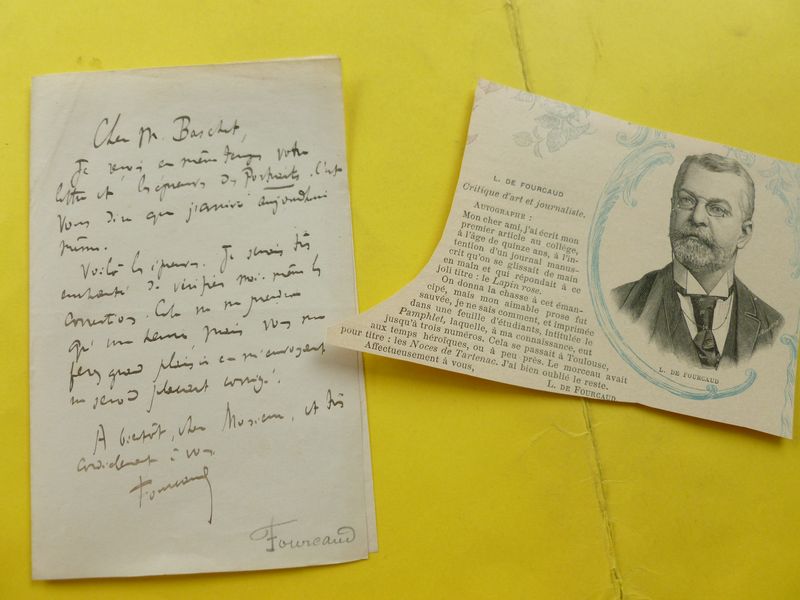 Cher M. Baschet,
Je reçois en même temps votre
lettre et les épreuves des Portraits. C'est
vous dire que j'arrive aujourd'hui
même.
Voilà les épreuves. Je serais très
enchanté de vérifier moi-même les
corrections. Cela ne me prendra
qu'une heure, mais vous me
ferez grand plaisir en m'envoyant
un second placard corrigé.
A bientôt, cher Monsieur, et très
cordialement à vous
Fourcaud
Fourcaud
L. DE FOURCAUD
Critique d'art et journaliste.
AUTOGRAPHE :
Mon cher ami, j'ai écrit mon
premier article au collège,
à l'âge de quinze ans, à l'in-
tention d'un journal manus-
crit qu'on se glissait de main
en main et qui répondait à ce
joli titre : le Lapin rose.
On donna la chasse à cet éman-
cipé, mais mon aimable prose fut
sauvée, je ne sais comment, et imprimée
dans une feuille d'étudiants, intitulée le
Pamphlet, laquelle, à ma connaissance, eut
jusqu'à trois numéros. Cela se passait à Toulouse,
aux temps héroïques, ou à peu près. Le morceau avait
pour titre : les Noces de Tartenac. J'ai bien oublié le reste.
Affectueusement à vous,
L. DE FOURCAUD
L. DE FOURCAUD